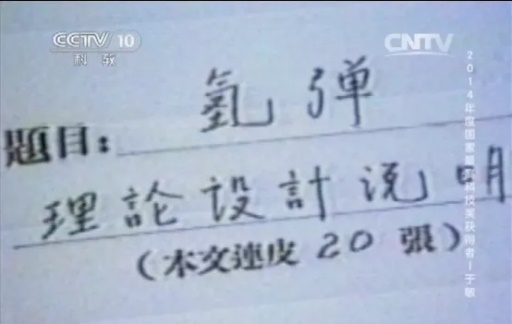 CCTV 10
科教
CNTV
題目: 氢弹
理論设計说明
(本文連皮 20 張)
2014年度国家最高科技奖获得者—于敏